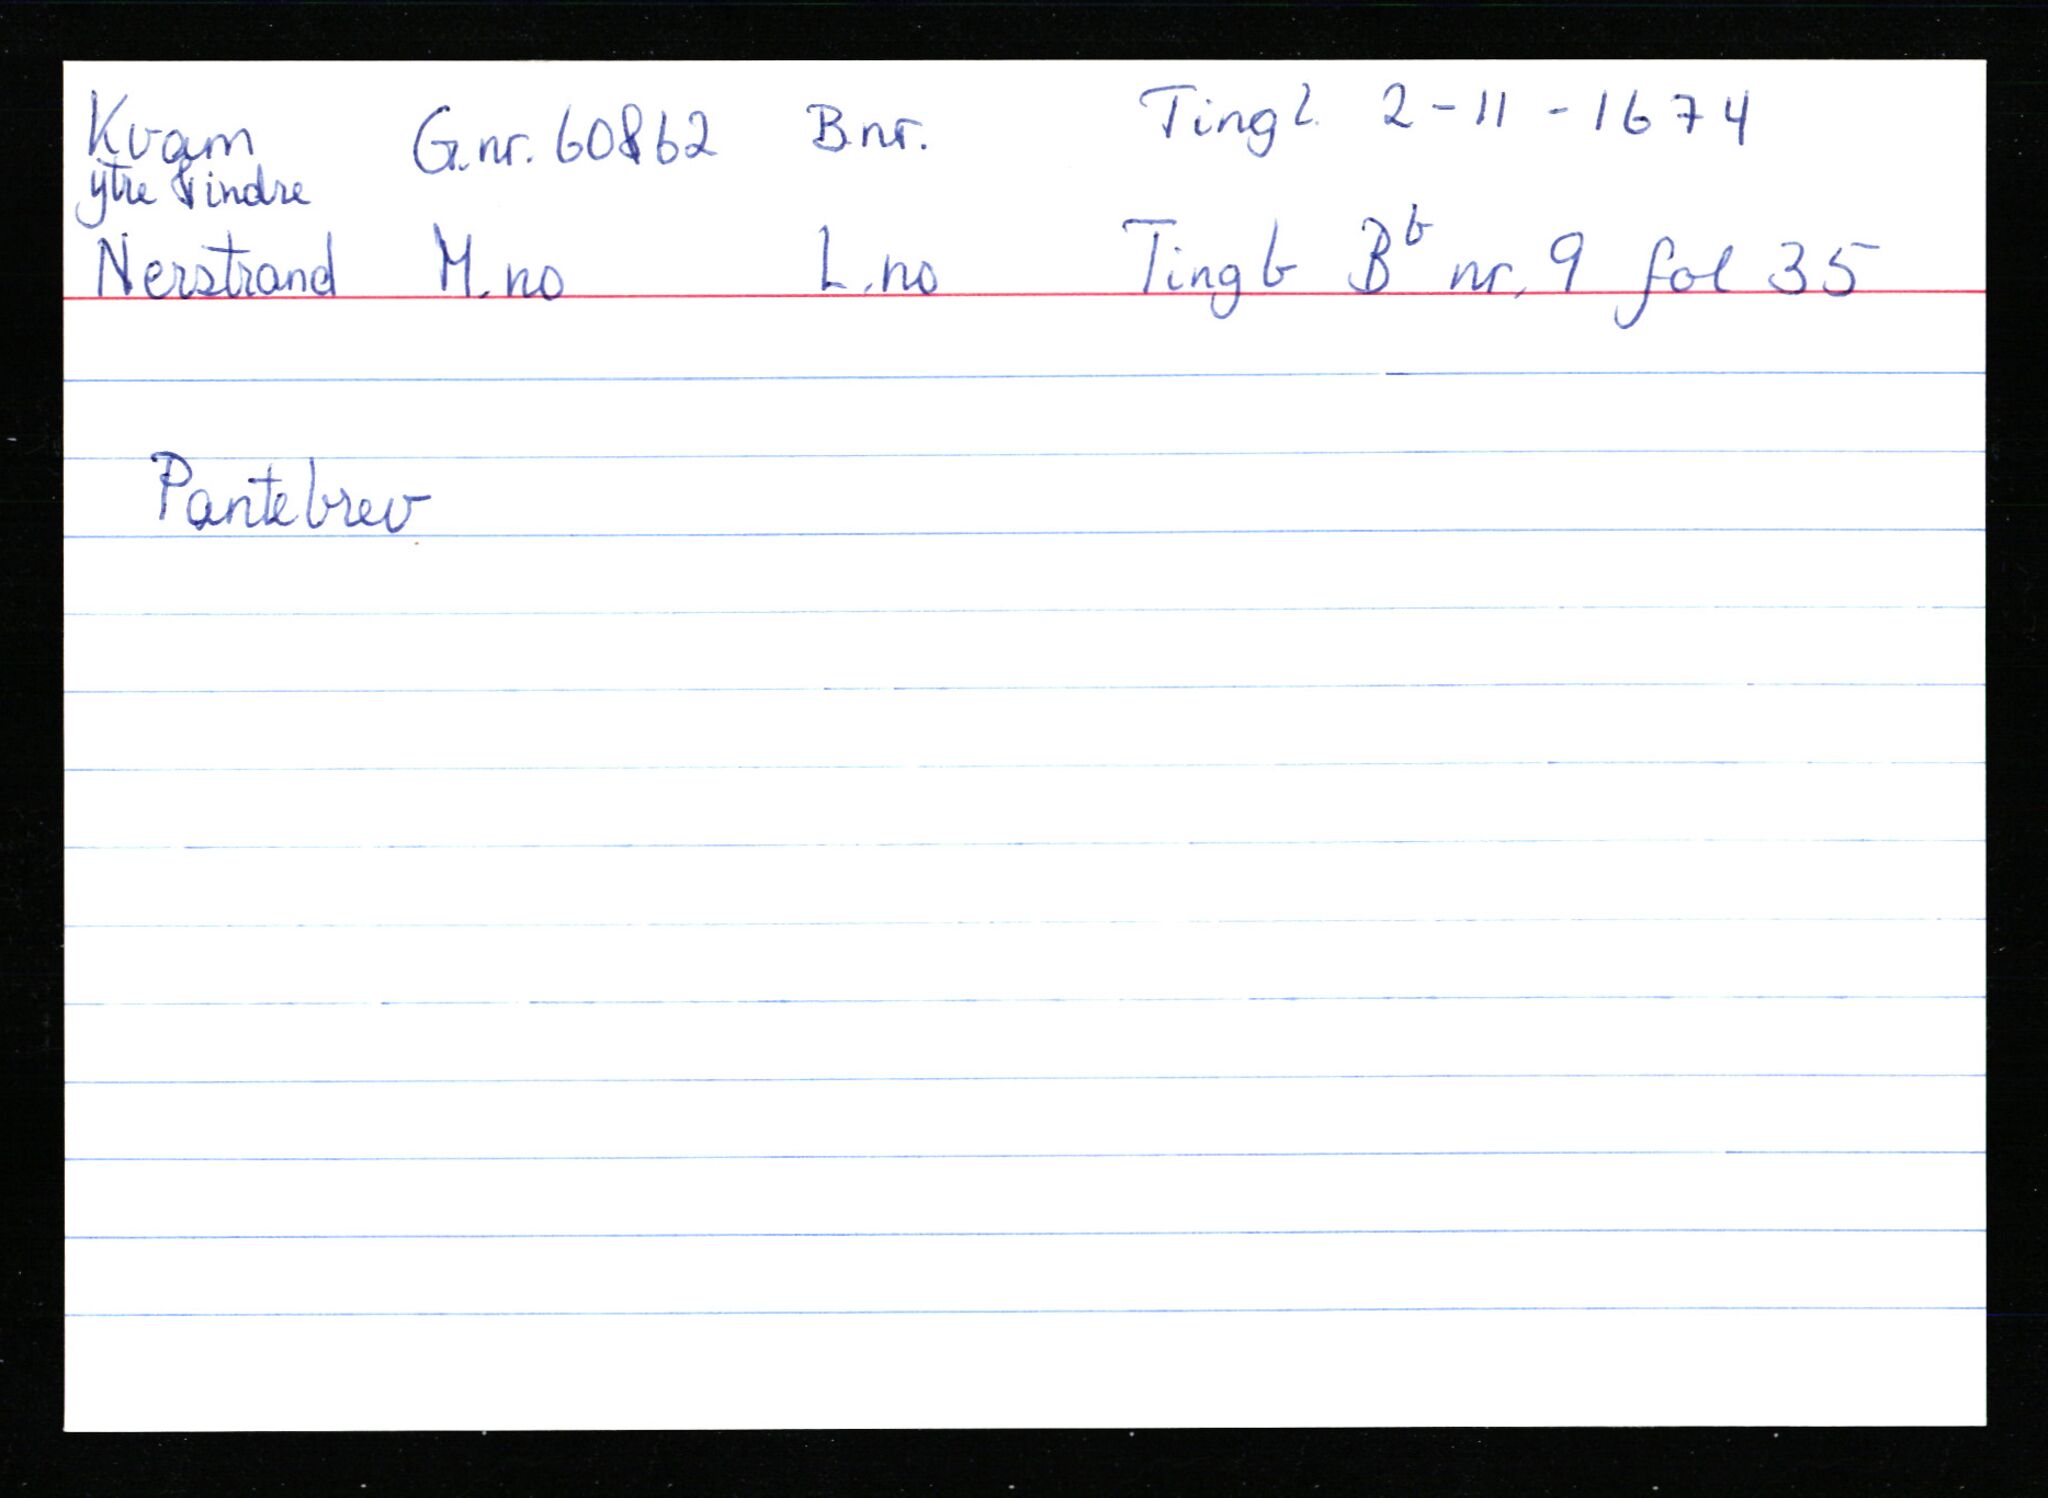 Kvam G.nr. 60&62 B.nr. Tingl. 2-11-1674
ytre & indre
Nerstrand M.no L.no Tingb Bb nr. 9 fol 35
Pantebrev